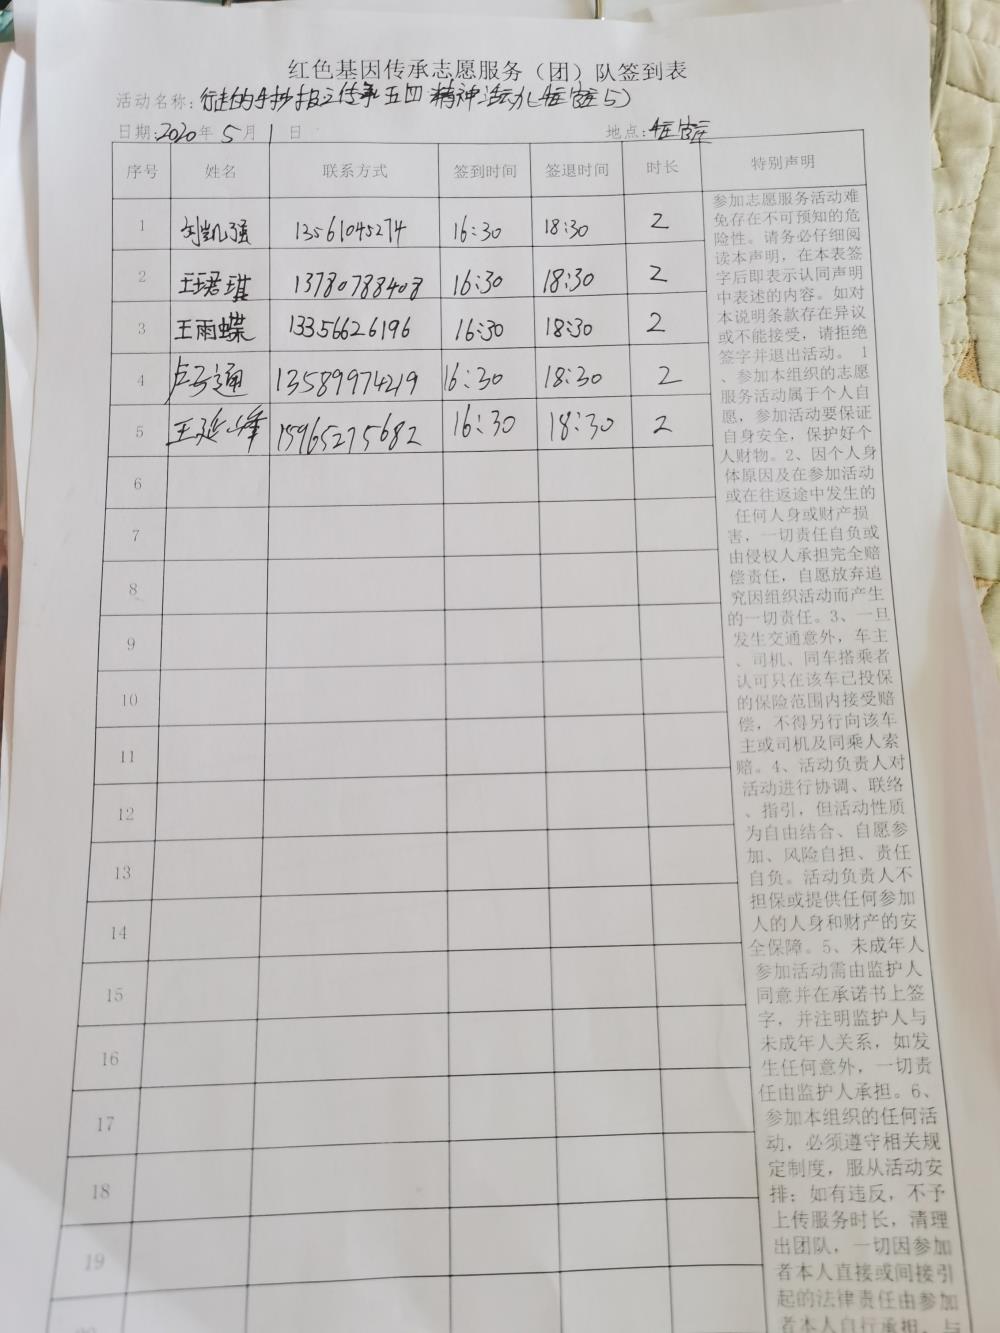 红色基因传承志愿服务（团）队签到表
活动名称：行走的手抄报之传承五四精神活动（ 5）
日期：2020年 5月 1 日 地点：
序号 姓名 联系方式 签到时间 签退时间 时长 特别声明
1 刘凯强 13561045274 16:30 18:30 2
2 王珺琪 13780788408 16:30 18:30 2
3 王雨蝶 13356626196 16:30 18:30 2
4 卢子通 13589974219 16:30 18:30 2
5 王延峰 15965275682 16:30 18:30 2
6
7
8
9
10
11
12
13
14
15
16
17
18
19
参加志愿服务活动难
免存在不可预知的危
险性。请务必仔细阅
读本声明，在本表签
字后即表示认同声明
中表述的内容。如对
本说明条款存在异议
或不能接受，请拒绝
签字并退出活动。 1
、参加本组织的志愿
服务活动属于个人自
愿，参加活动要保证
自身安全，保护好个
人财物。2、因个人身
体原因及在参加活动
或在往返途中发生的
任何人身或财产损
害，一切责任自负或
由侵权人承担完全赔
偿责任，自愿放弃追
究因组织活动而产生
的一切责任。3、一旦
发生交通意外，车主
、司机、同车搭乘者
认可只在该车已投保
的保险范围内接受赔
偿，不得另行向该车
主或司机及同乘人索
赔。4、活动负责人对
活动进行协调、联络
、指引，但活动性质
为自由结合、自愿参
加、风险自担、责任
自负。活动负责人不
担保或提供任何参加
人的人身和财产的安
全保障。5、未成年人
参加活动需由监护人
同意并在承诺书上签
字，并注明监护人与
未成年人关系，如发
生任何意外，一切责
任由监护人承担。6、
参加本组织的任何活
动，必须遵守相关规
定制度，服从活动安
排；如有违反，不予
上传服务时长，清理
出团队，一切因参加
者本人直接或间接引
起的法律责任由参加
者本人自行承担，与